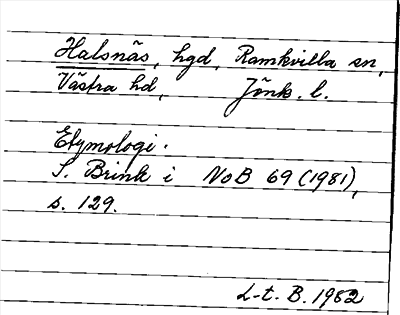 Halsnäs, hgd, Ramkvilla sn,
Västra hd, Jönk. l.
Etymologi.
S. Brink i NoB 69 (1981),
s. 129.
L-t. B. 1982